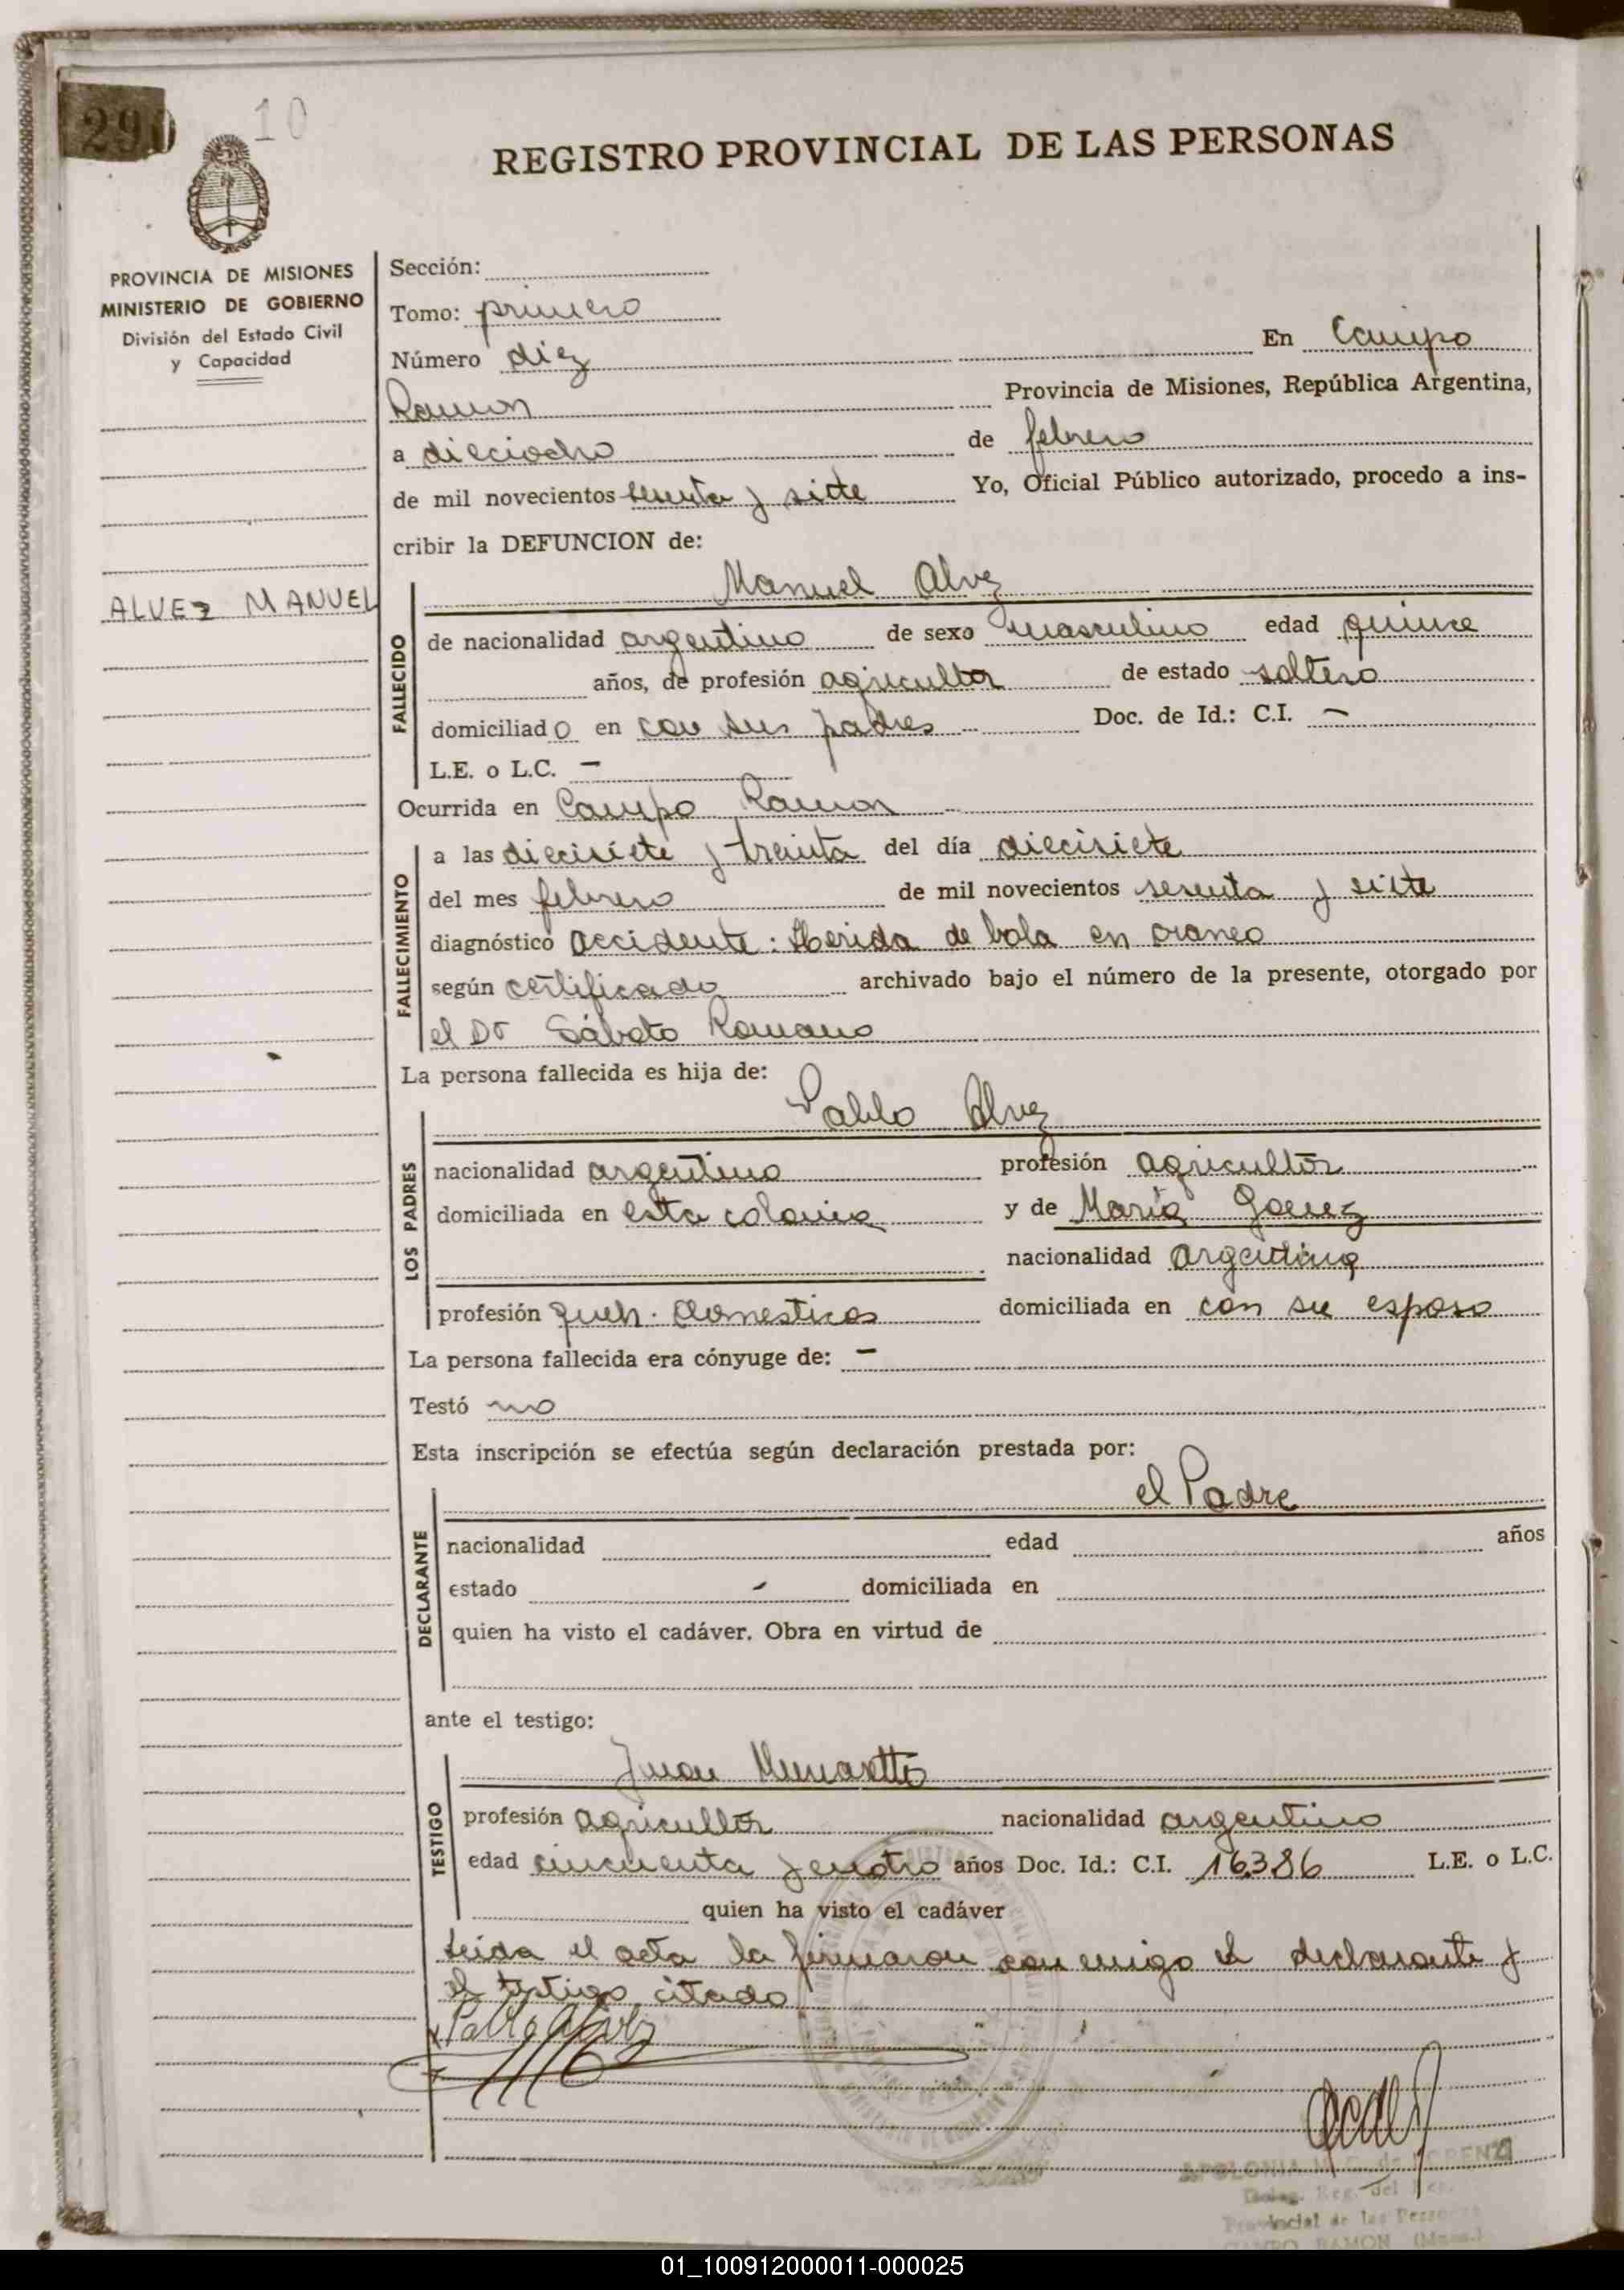 290 10
REGISTRO PROVINCIAL DE LAS PERSONAS
PROVINCIA DE MISIONES
MINISTERIO DE GOBIERNO
División del Estado Civil
y Capacidad
ALVEZ MANUEL
Sección:
Tomo: primero
Número diez En Campo
Ramon Provincia de Misiones, República Argentina,
a dieciocho de febrero
de mil novecientos sesenta y siete Yo, Oficial Público autorizado, procedo a ins-
cribir la DEFUNCION de:
Manuel Alvez
FALLECIDO
de nacionalidad argentino de sexo masculino edad quince
años, de profesión agricultor de estado soltero
domiciliado en con sus padres - Doc. de Id.: C.I. -
L.E. o L.C. -
Ocurrida en Campo Ramon
FALLECIMIENTO
a las diecisiete y treinta del día diecisiete
del mes febrero de mil novecientos sesenta y siete
diagnóstico accidente: Herida de bala en craneo
según certificado archivado bajo el número de la presente, otorgado por
el Dr Sábato Romano
La persona fallecida es hija de:
Pablo Alvez
LOS PADRES
nacionalidad argentino profesión agricultor
domiciliada en esta colonia y de María Gomez
nacionalidad argentina
profesión queh. domesticos domiciliada en con su esposo
La persona fallecida era cónyuge de: -
Testó no
Esta inscripción se efectúa según declaración prestada por:
el Padre
DECLARANTE
nacionalidad edad años
estado domiciliada en
quien ha visto el cadáver. Obra en virtud de
ante el testigo:
Juan
TESTIGO
profesión agricultor nacionalidad argentino
edad cincuenta y cuatro años Doc. Id.: C.I. 16386 L.E. o L.C.
quien ha visto el cadáver
Leida el acta la firmaron con migo el declarante y
el testigo citado
Pablo Alvez
APOLONIA
Deleg. Reg. del
Provincial de las Personas
CAMPO RAMON (Mnes.)
01_100912000011-000025